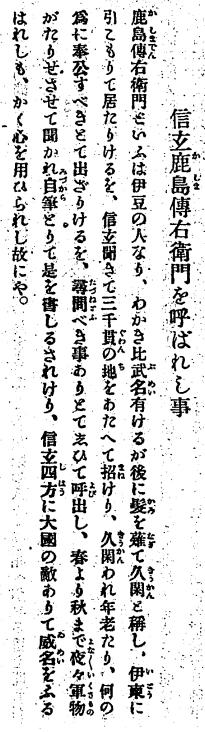 信玄鹿島傳右衛門を呼ばれし事
鹿島傳右衛門といふは伊豆の人なり、わかき比武名有けるが後に髮を薙て久閑と稱し、伊東に
引こもりて居たりけるを、信玄聞きて三千貫の地をあたへて招けり、久閑われ年老たり、何の
爲に奉公すべきとて出ざりけるを、尋問べき事ありとてゑひて呼出し、春より秋まで夜々軍物
がたりせさせて聞かれ自筆とりて是を書しるされけり、信玄四方に大國の敵ありて威名をふる
はれしも、かく心を用ひられし故にや。